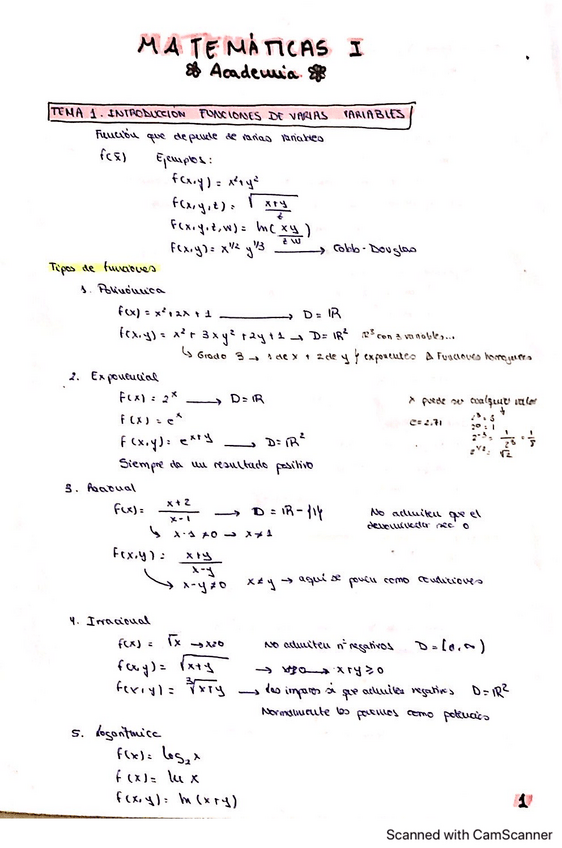 MATEMÁTICAS I
Academia
TEMA 1. INTRODUCCIÓN FUNCIONES DE VARIAS VARIABLES
Función que depende de varias variables
f(x̄) Ejemplos:
f(x,y) = x²+y²
f(x,y,z) = √((x+y)/z)
f(x,y,z,w) = ln(xy/zw)
f(x,y) = x^1/2 y^1/3 → Cobb-Douglas
Tipos de funciones
1. Polinómica
f(x) = x²+2x+1 → D = ℝ
f(x,y) = x² + 3xy² + 2y + 1 → D = ℝ² con 3 variables...
↳ Grado 3 → 1 de x + 2 de y exponentes Δ Funciones homogéneas
2. Exponencial
f(x) = 2^x → D = ℝ
x puede ser cualquier valor
f(x) = e^x
e = 2.71
f(x,y) = e^(x+y) → D = ℝ²
2^-3 = 1/2^3 = 1/8
2^1/2 = √2
Siempre da un resultado positivo
3. Racional
f(x) = (x+2)/(x-1) → D = ℝ - {1}
No admiten que el
denominador sea 0
↳ x-1 ≠ 0 → x ≠ 1
f(x,y) = (x+y)/(x-y)
↳ x-y ≠ 0 x ≠ y → aquí se ponen como condiciones
4. Irracional
f(x) = √x → x≥0 No admiten nº negativos D = [0,∞)
f(x,y) = √(x+y) → x+y ≥ 0
f(x,y) = ³√(x+y) → las impares si que admiten negativos D = ℝ²
Normalmente las ponemos como potencias
5. Logarítmica
f(x) = log₂ x
f(x) = ln x
f(x,y) = ln(x+y)
1
Scanned with CamScanner